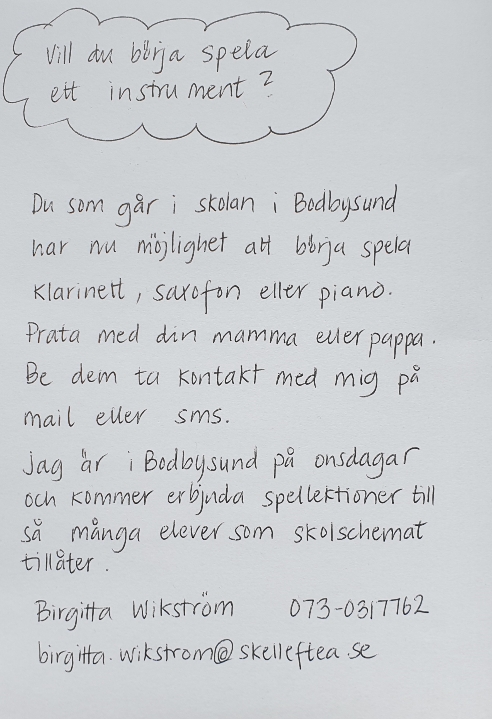 Vill du börja spela
ett instrument?
Du som går i skolan i Bodbysund
har nu möjlighet att börja spela
Klarinett, saxofon eller piano.
Prata med din mamma eller pappa.
Be dem ta kontakt med mig på
mail eller sms.
Jag är i Bodbysund på onsdagar
och kommer erbjuda spellektioner till
så många elever som skolschemat
tillåter.
Birgitta Wikström 073-0317762
birgitta.wikstrom@skelleftea.se